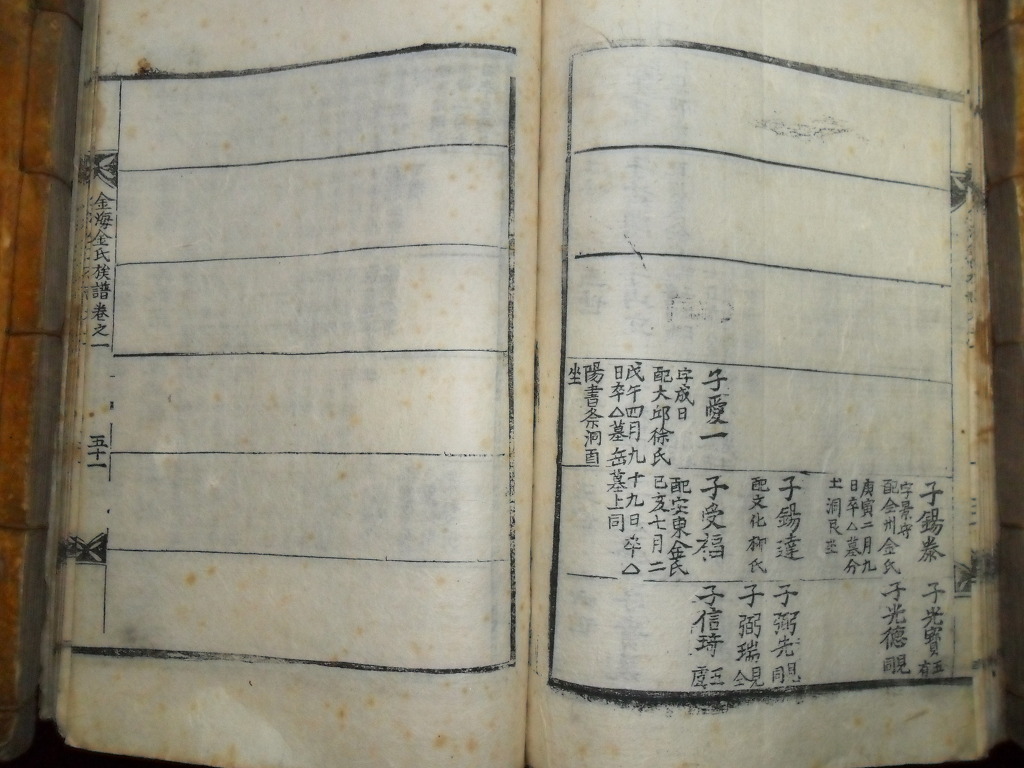 子錫泰
字景守
配金州金氏
庚寅二月九
日卒△墓分
土洞艮坐
子錫達
配文化柳氏
子愛一
字成日
配大邱徐氏
戊午四月九
日卒△墓岳
陽書条洞酉
坐
子受福
配安東金氏
己亥七月二
十九日卒△
墓上同
子光寶
子光德
子弼先
子弼瑞
子信琦
金海金氏族譜卷之一
五十一